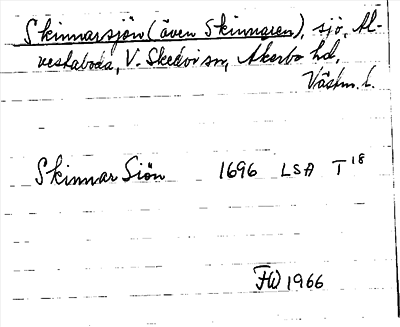 Skinnarsjön (även Skinnaren), sjö, Al-
vestaboda, V. Skedvi sn, Åkerbo hd,
Västm. l.
Skinnar Siön 1696 LSA T 18
FW 1966